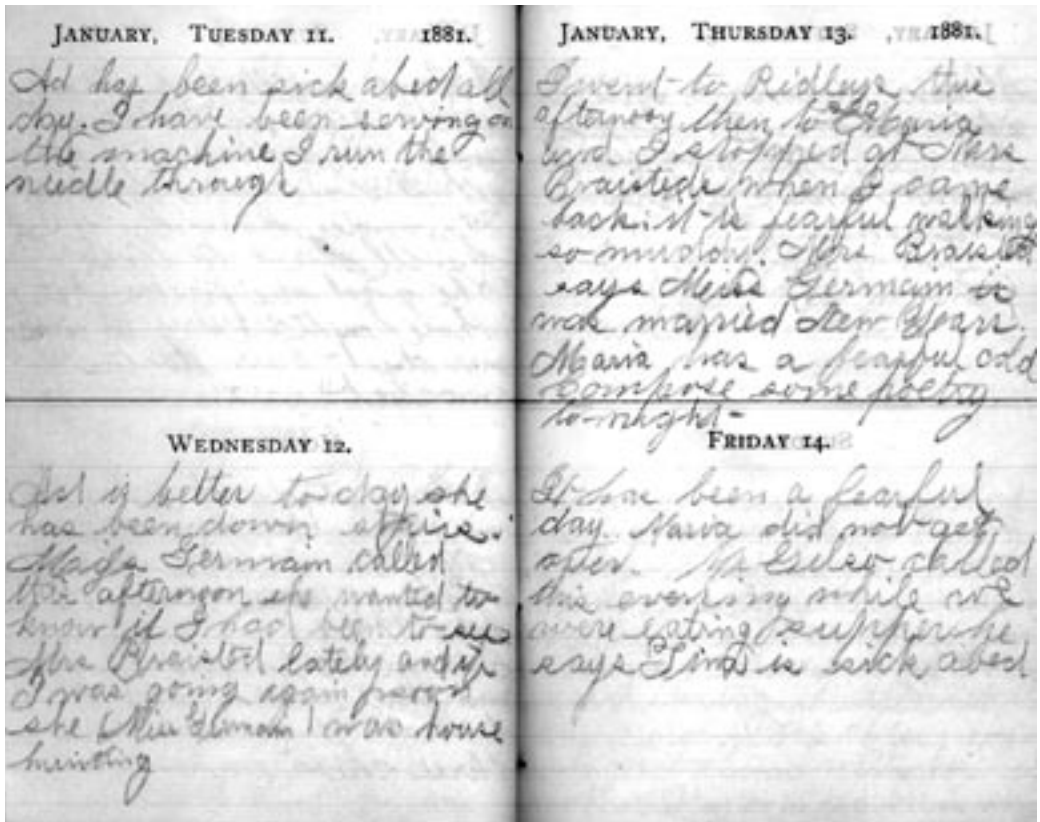 JANUARY, TUESDAY 11. 1881.
Ad has been sick abed all
day. I have been sewing on
the machine I run the
needle through
WEDNESDAY 12.
Ad is better to day she
has been down stairs.
Germain called
this afternoon she wanted to
know if I had been to see
Mrs Braisted lately and if
I was going again soon
she (Miss Germain) was house
hunting
JANUARY, THURSDAY 13. 1881.
I went to Ridleys this
afternoon then to see Maria
and I stopped at Mrs
Braisteds when I came
back. it is fearful walking
so muddy. Mrs Braisted
says Miss Germain is
was married New Years.
Maria has a fearful cold
compose some poetry
to-night-
FRIDAY 14.
It has been a fearful
day. Maria did not get
over. Mr called
this evening while we
were eating supper he
says is sick abed